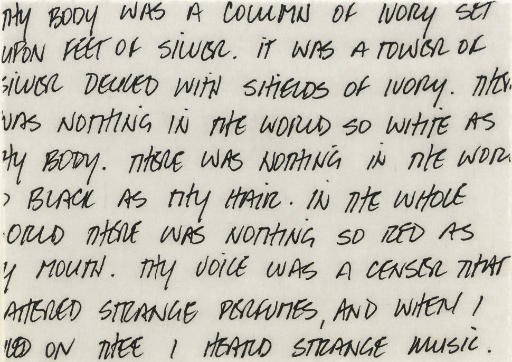 THY BODY WAS A COLUMN OF IVORY SET
UPON FEET OF SILVER. IT WAS A TOWER OF
SILVER DECKED WITH SHIELDS OF IVORY. THER
WAS NOTHING IN THE WORLD SO WHITE AS
HY BODY. THERE WAS NOTHING IN THE WORL
O BLACK AS THY HAIR. IN THE WHOLE
ORLD THERE WAS NOTHING SO RED AS
Y MOUTH. THY VOICE WAS A CENSER THAT
ATTERED STRANGE PERFUMES, AND WHEN I
KED ON THEE I HEARD STRANGE MUSIC.